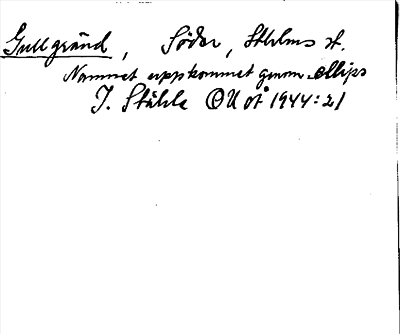 Gullgränd, Söder, Sthlms st.
Namnet uppkommet genom ellips
I. Ståhle OU oÅ 1944:21